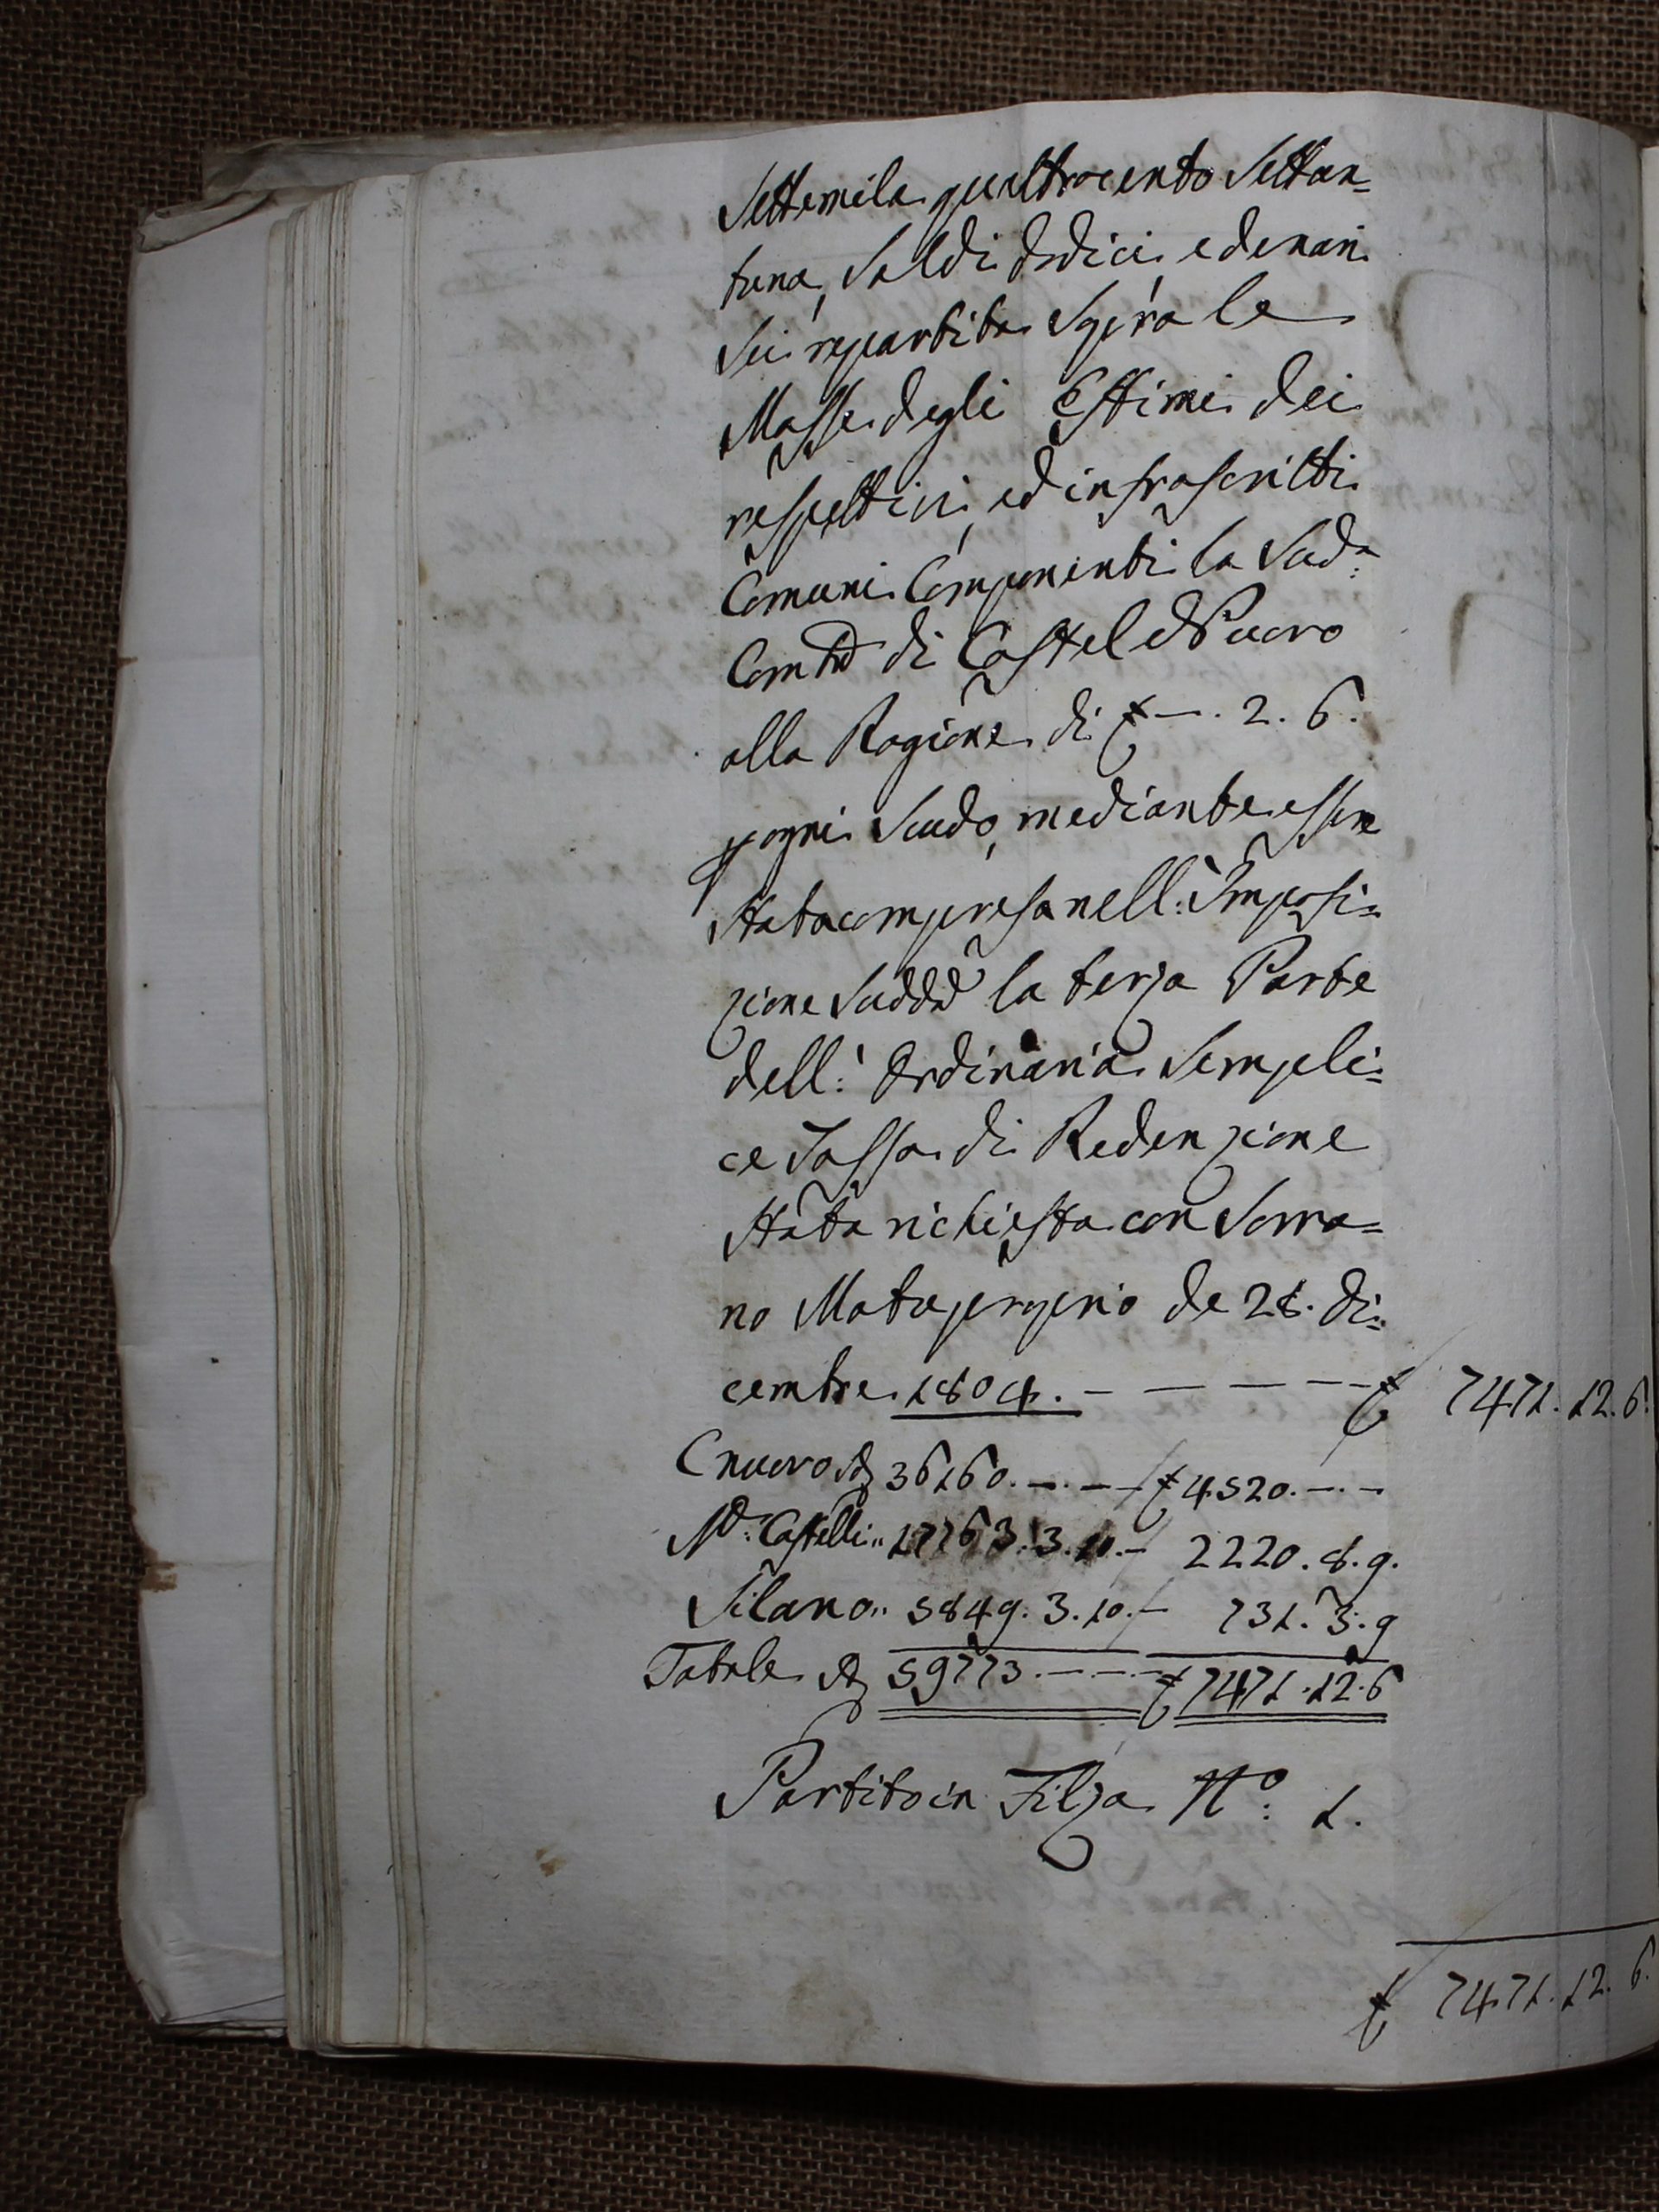 Settemila quattrocento Settan=
tuna, Soldi dodici e denari
Sei repartita Sopra le
Masse degli Estimi dei
respettivi, ed infrascritti
Comuni Componenti la Sud.ª
Com.tà di Castel Nuovo
alla Ragione di £ —. 2. 6.
p ogni Scudo, mediante essere
Stata compresa nell: Imposi=
zione Sudd.ª la terza Parte
dell: Ordinaria Sempli=
ce Tassa di Redenzione
Stata richiesta con Sovra=
no Motuproprio de 28. di=
cembre 1804. — — — — £ 7471. 12. 6.
C nuovo 36160. —. — £ 4520. —. —
M.e Castelli „ 17763. 3. 10. — 2220. 8. 9.
Silano „ 5849. 3. 10. — 731. 3. 9
Totale 59773. —. — £ 7471. 12. 6
Partito in Filza N.º 1.
£ 7471. 12. 6.